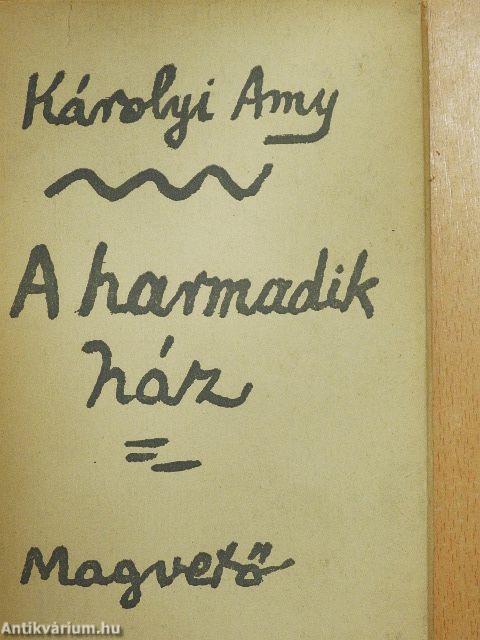 Károlyi Amy
A harmadik
ház
Magvető
Antikvárium.hu